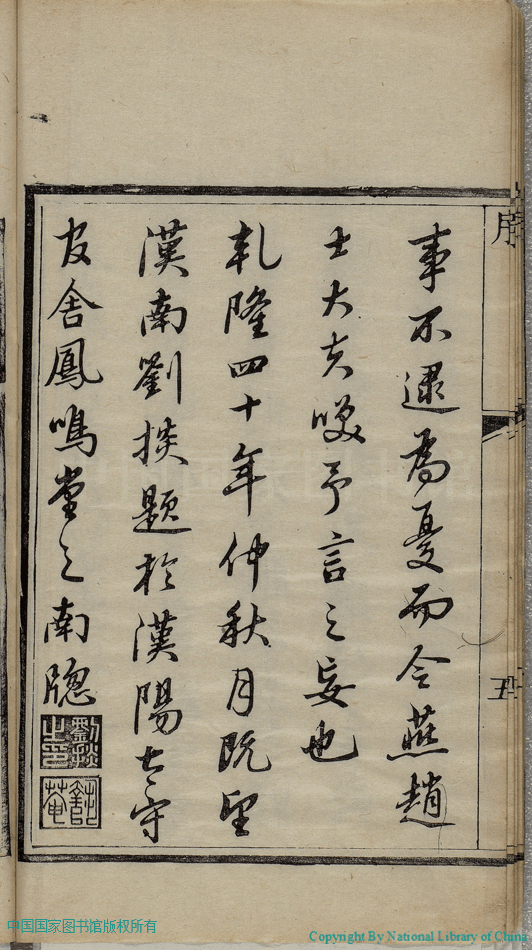 序
五
事不逮為憂而令燕趙
士大夫予言之妄也
乾隆四十年仲秋月既望
漢南劉掞題於漢陽太守
官舍鳳鳴堂之南牕
劉掞之印
菴
中国国家图书馆版权所有
Copyright By National Library of China